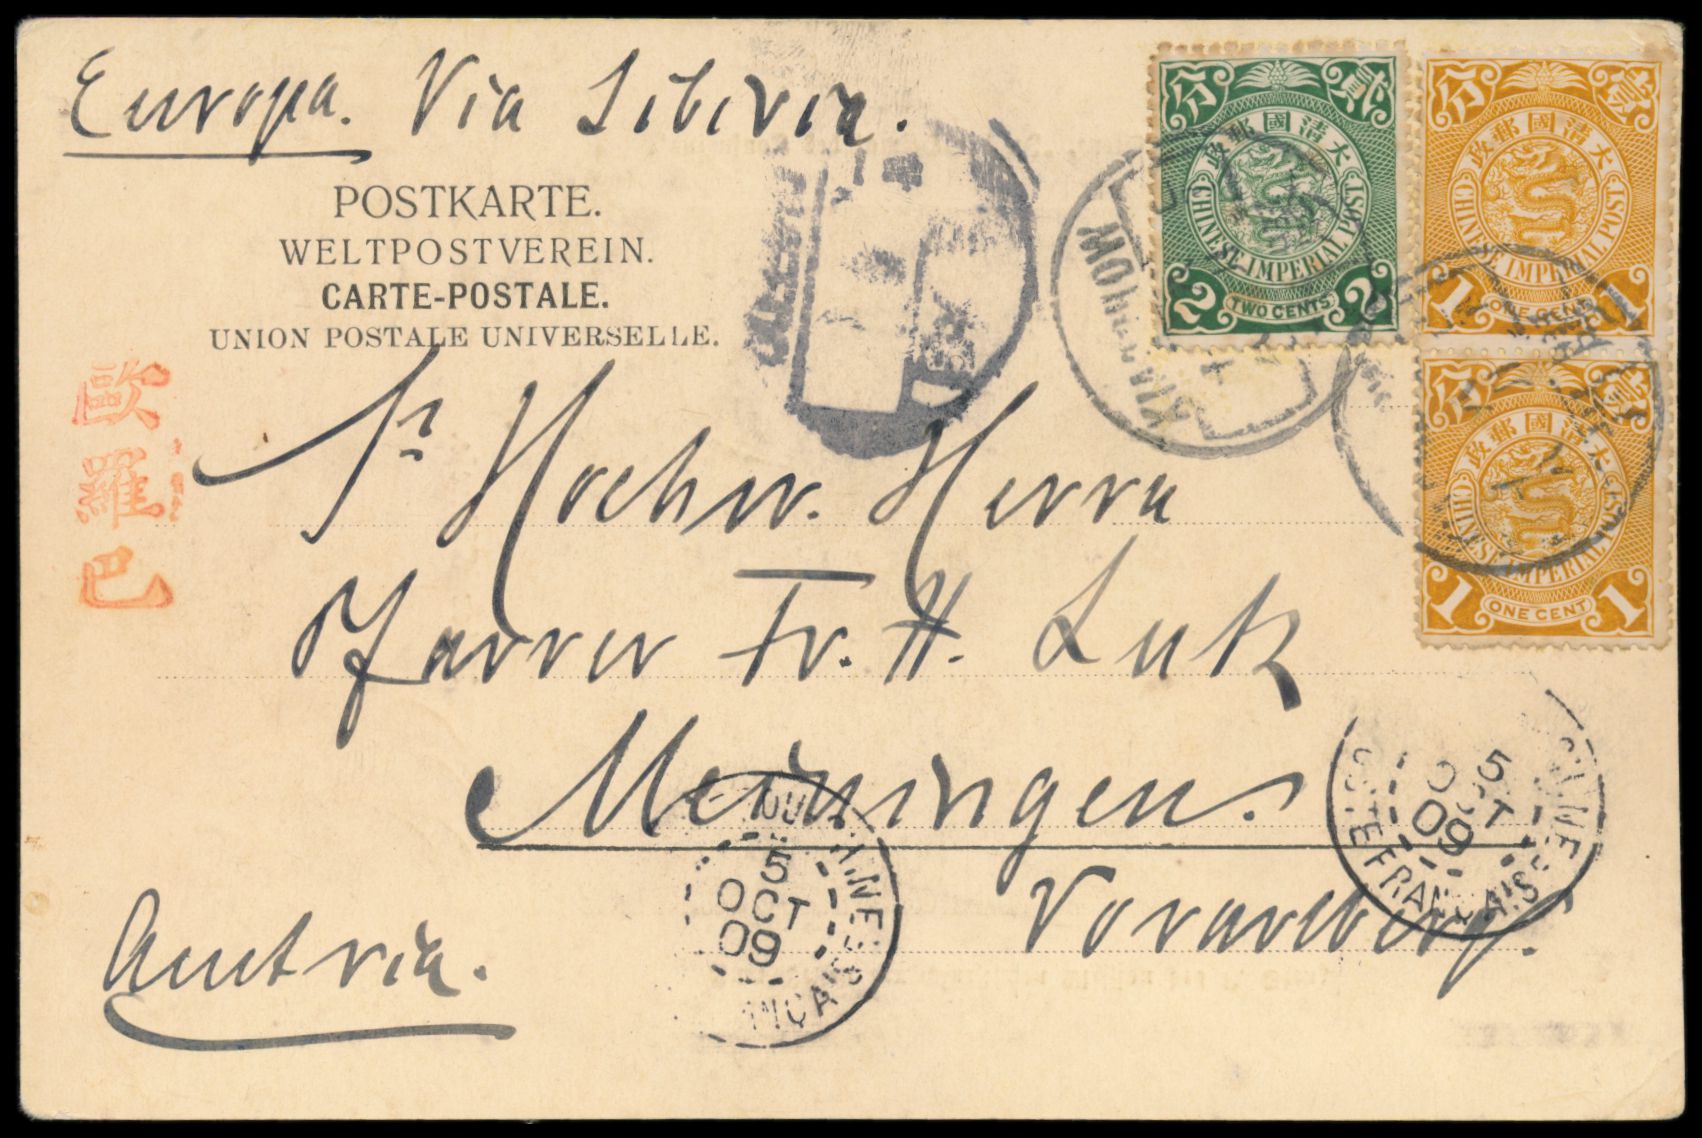 Europa. Via Sibiria.
POSTKARTE.
WELTPOSTVEREIN.
CARTE-POSTALE.
UNION POSTALE UNIVERSELLE.
分 貳
大清國郵政
CHINESE IMPERIAL POST
2 TWO CENTS 2
分 壹
大清國郵政
CHINESE IMPERIAL POST
1 ONE CENT 1
分 壹
大清國郵政
CHINESE IMPERIAL POST
1 ONE CENT 1
歐羅巴
Sr Hochw. Herrn
Pfarrer Fr. H. Lutz
Meiningen.
Vorarlberg.
Austria.
5
OCT
09
5
OCT
09
POSTE FRANÇAISE